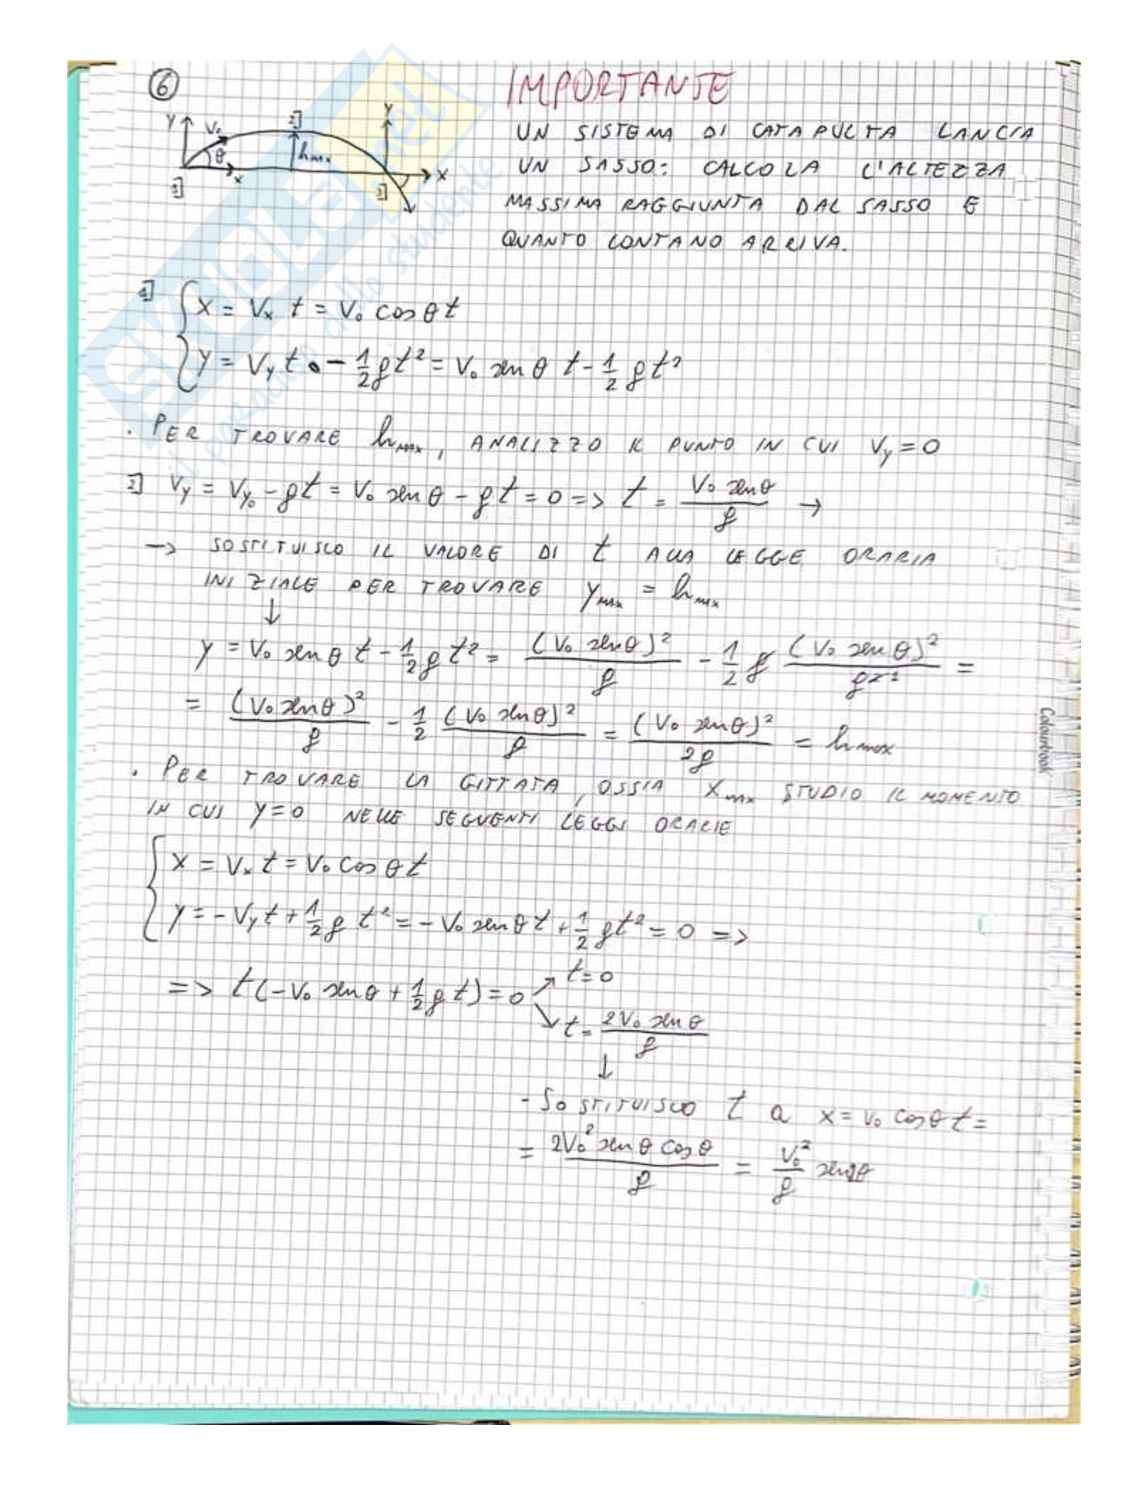 6
IMPORTANTE
UN SISTEMA DI CATAPULTA LANCIA
UN SASSO: CALCOLA L'ALTEZZA
MASSIMA RAGGIUNTA DAL SASSO E
QUANTO LONTANO ARRIVA.
y V₀ θ x 1] 2] hmax y x 3]
1] { x = Vₓ t = V₀ cosθ t
y = Vy t - 1/2 g t² = V₀ senθ t - 1/2 g t²
. PER TROVARE hmax, ANALIZZO IL PUNTO IN CUI Vy = 0
2] Vy = Vy₀ - gt = V₀ senθ - gt = 0 => t = V₀ senθ / g →
→ SOSTITUISCO IL VALORE DI t ALLA LEGGE ORARIA
INIZIALE PER TROVARE ymax = hmax
↓
y = V₀ senθ t - 1/2 g t² = (V₀ senθ)² / g - 1/2 g (V₀ senθ)² / g² =
= (V₀ senθ)² / g - 1/2 (V₀ senθ)² / g = (V₀ senθ)² / 2g = hmax
. PER TROVARE LA GITTATA, OSSIA Xmax STUDIO IL MOMENTO
IN CUI y=0 NELLE SEGUENTI LEGGI ORARIE
{ x = Vₓ t = V₀ cosθ t
y = -Vy t + 1/2 g t² = -V₀ senθ t + 1/2 g t² = 0 =>
=> t(-V₀ senθ + 1/2 g t) = 0 ↗ t = 0
↘ t = 2V₀ senθ / g
↓
- SOSTITUISCO t a x = V₀ cosθ t =
= 2V₀² senθ cosθ / g = V₀² / g sen2θ
Colourbook
SKUOLA.net